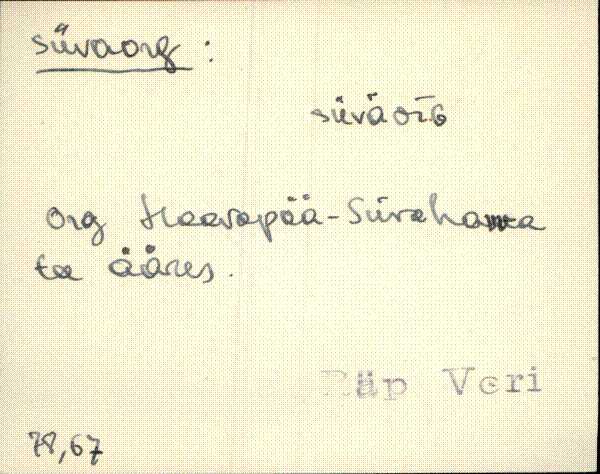 süvaorg :
süväorG
Org Haavapää-Süvahavva
tee ääres.
Räp Veri
78,67